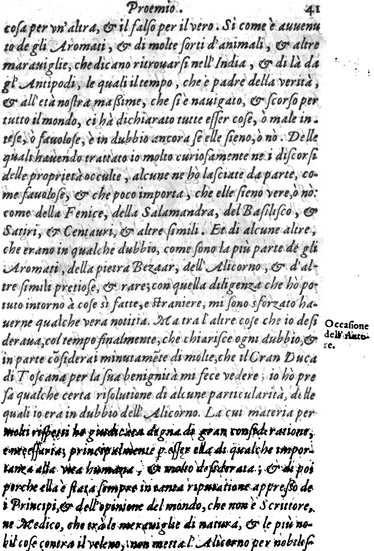 Proemio. 41
cosa per vn'altra, & il falso per il vero. Si come è auuenu
to de gli Aromati, & di molte sorti d'animali, & altre
marauiglie, che dicano ritrouarsi nell'India, & di là da
gl'Antipodi, le quali il tempo, che è padre della verità,
& all'età nostra maßime, che si è nauigato, & scorso per
tutto il mondo, ci hà dichiarato tutte esser cose, ò male in-
tese, ò fauolose, è in dubbio ancora se elle sieno, ò nò. Delle
quali hauendo trattato io molto curiosamente ne i discorsi
delle proprietà occulte, alcune ne hò lasciate da parte, co-
me fauolose, & che poco importa, che elle sieno vere, ò nò:
come della Fenice, della Salamandra, del Basilisco, &
Satiri, & Centauri, & altre simili. Et di alcune altre,
che erano in qualche dubbio, come sono la più parte de gli
Aromati, della pietra Bezaar, dell'Alicorno, & d'al-
tre simili pretiose, & rare; con quella diligenza che hò po-
tuto intorno à cose sì fatte, e straniere, mi sono sforzato ha-
uerne qualche vera notitia. Ma tra l'altre cose che io desi
deraua, col tempo finalmente, che chiarisce ogni dubbio, &
in parte cōsiderai minutamēte di molte, che il Gran Duca
di Toscana per la sua benignità mi fece vedere; io hò pre
sa qualche certa risolutione di alcune particularità, delle
quali io era in dubbio dell'Alicorno. La cui materia per
molti rispetti hò giudicata degna de gran consideratione,
e necessaria; principalmente p esser ella di qualche impor-
tanza alla vita humana, & molto desiderata; & di poi
porche ella è stata sempre in tanta riputatione appresso de
i Principi, & dell'opinione del mondo, che non è Scrittore,
ne Medico, che trà le merauiglie di natura, & le più no-
bil cose contra il veleno, non metta l'Alicorno per nobilis
Occasione
dell'Auto-
re.